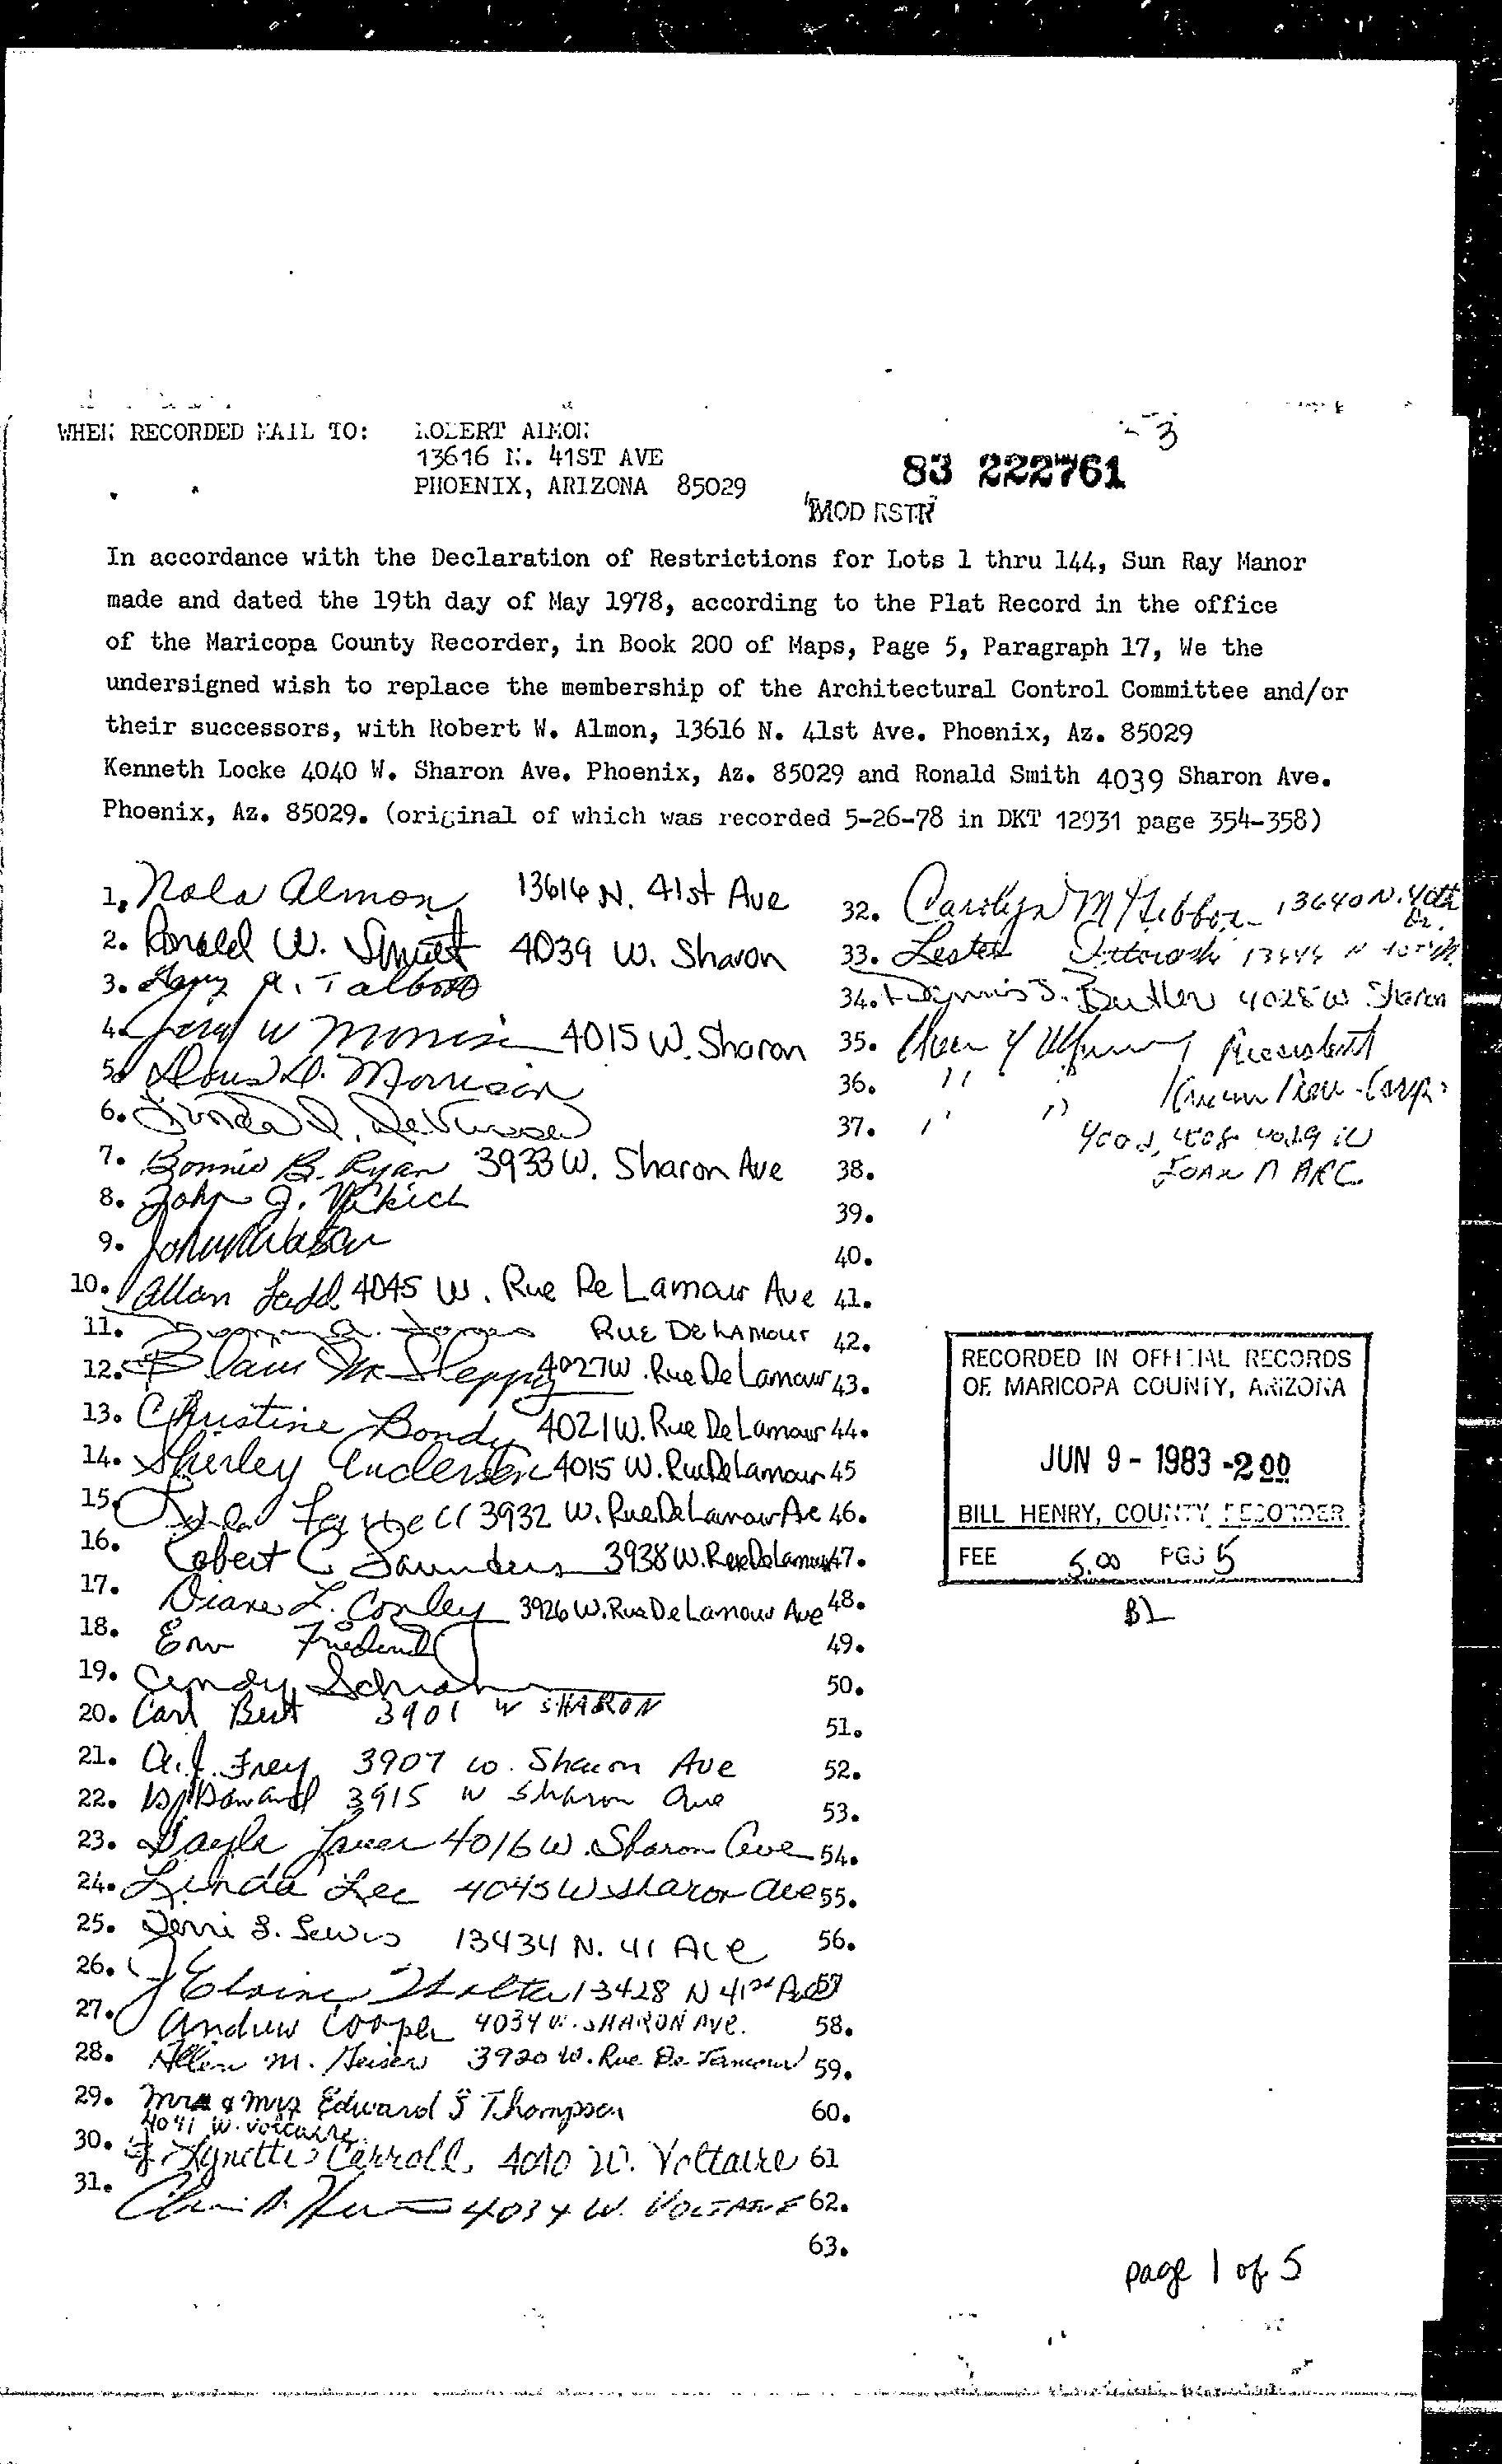 WHEN RECORDED MAIL TO: ROBERT ALMON
13616 N. 41ST AVE
PHOENIX, ARIZONA 85029
3
83 222761
"MOD RSTR"
In accordance with the Declaration of Restrictions for Lots 1 thru 144, Sun Ray Manor
made and dated the 19th day of May 1978, according to the Plat Record in the office
of the Maricopa County Recorder, in Book 200 of Maps, Page 5, Paragraph 17, We the
undersigned wish to replace the membership of the Architectural Control Committee and/or
their successors, with Robert W. Almon, 13616 N. 41st Ave. Phoenix, Az. 85029
Kenneth Locke 4040 W. Sharon Ave. Phoenix, Az. 85029 and Ronald Smith 4039 Sharon Ave.
Phoenix, Az. 85029. (original of which was recorded 5-26-78 in DKT 12931 page 354-358)
1. Nola Almon 13616 N. 41st Ave
2. Ronald W. Smith 4039 W. Sharon
3. Gary A. Talbott
4. W Morrison 4015 W. Sharon
5. D. Morrison
6.
7. Bonnie B. Ryan 3933 W. Sharon Ave
8. John J. Vukich
9. John
10. Allan Ladd 4045 W. Rue De Lamour Ave
11. Rue De Lamour
12. Blair 4027 W. Rue De Lamour
13. Christine Bondy 4021 W. Rue De Lamour
14. Shirley Andersen 4015 W. Rue De Lamour
15. 3932 W. Rue De Lamour Ave
16. Robert C Saunders 3938 W. Rue De Lamour
17. Diane L. Conley 3926 W. Rue De Lamour Ave
18. Erv
19. Cindy
20. Carl Best 3901 W SHARON
21. A.J. Frey 3907 W. Sharon Ave
22. 3915 W Sharon Ave
23. Gayle 4016 W. Sharon Ave
24. Linda Lee 4045 W Sharon Ave
25. Terri S. Lewis 13434 N. 41 Ave
26. J Elaine 13428 N 41st Ave
27. Andrew Cooper 4034 W. SHARON AVE.
28. M. 3920 W. Rue De Lamour
29. Mr & Mrs Edward S Thompson
4041 W. Voltaire
30. Lynette Carroll, 4010 W. Voltaire
31. 4034 W. VOLTAIRE
32. Carolyn 13640 N. 40th
Dr.
33. Lester
34. Dennis S. Butler 4028 W Sharon
35. President
36. " " Corp.
37. " "
38. JOAN D ARC.
39.
40.
41.
42.
43.
44.
45
46.
47.
48.
49.
50.
51.
52.
53.
54.
55.
56.
57
58.
59.
60.
61
62.
63.
RECORDED IN OFFICIAL RECORDS
OF MARICOPA COUNTY, ARIZONA
JUN 9 - 1983 -2 00
BILL HENRY, COUNTY RECORDER
FEE 5.00 PGS 5
BL
page 1 of 5